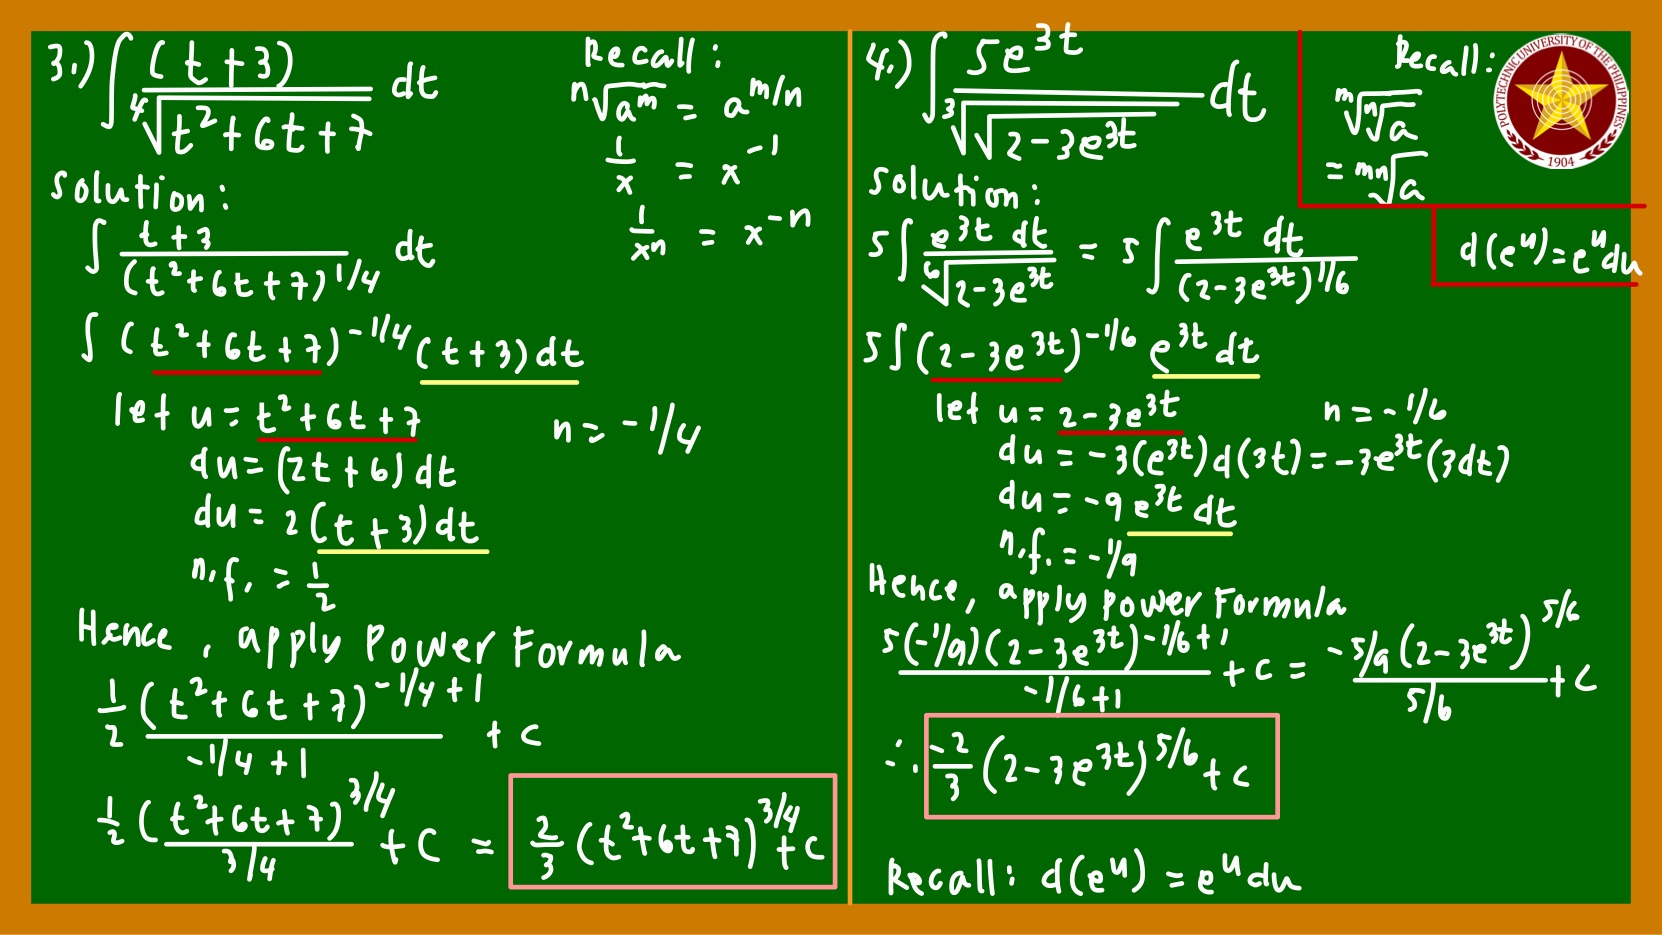 3.) ∫ (t+3) / ⁴√(t²+6t+7) dt
Recall:
ⁿ√(aᵐ) = a^(m/n)
1/x = x⁻¹
1/xⁿ = x⁻ⁿ
Solution:
∫ (t+3) / (t²+6t+7)^(1/4) dt
∫ (t²+6t+7)^(-1/4) (t+3) dt
let u = t²+6t+7    n = -1/4
du = (2t+6) dt
du = 2(t+3) dt
n.f. = 1/2
Hence, apply Power Formula
1/2 (t²+6t+7)^(-1/4+1) / (-1/4+1) + C
1/2 (t²+6t+7)^(3/4) / (3/4) + C = 2/3 (t²+6t+7)^(3/4) + C
4.) ∫ 5e^(3t) / ³√(√(2-3e^(3t))) dt
Recall:
ᵐ√(ⁿ√a)
= ᵐⁿ√a
POLYTECHNIC UNIVERSITY OF THE PHILIPPINES
1904
Solution:
5 ∫ e^(3t) dt / ⁶√(2-3e^(3t)) = 5 ∫ e^(3t) dt / (2-3e^(3t))^(1/6)
d(e^u) = e^u du
5 ∫ (2-3e^(3t))^(-1/6) e^(3t) dt
let u = 2-3e^(3t)    n = -1/6
du = -3(e^(3t)) d(3t) = -3e^(3t) (3dt)
du = -9 e^(3t) dt
n.f. = -1/9
Hence, apply Power Formula
5(-1/9)(2-3e^(3t))^(-1/6+1) / (-1/6+1) + C = -5/9 (2-3e^(3t))^(5/6) / (5/6) + C
∴ -2/3 (2-3e^(3t))^(5/6) + C
Recall: d(e^u) = e^u du